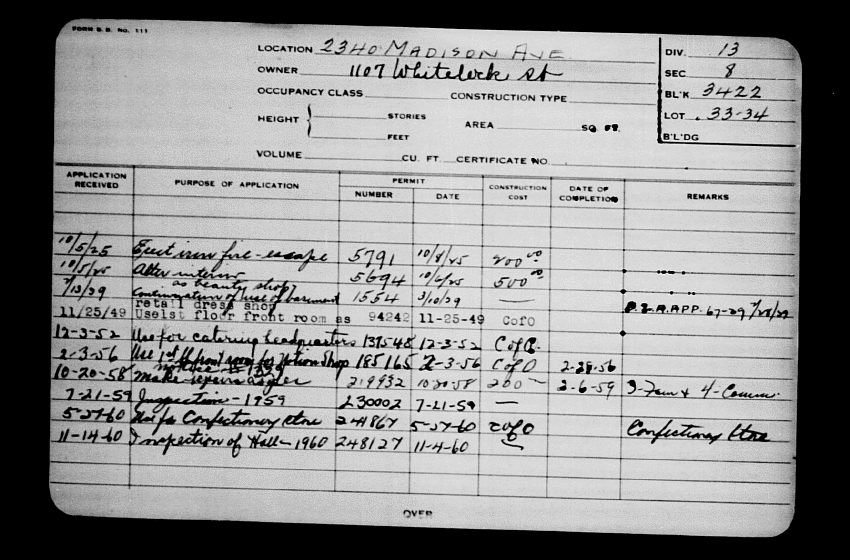 FORM B.B. No. 111
LOCATION 2340 MADISON AVE. DIV. 13
OWNER 1107 Whitelock St SEC 8
OCCUPANCY CLASS CONSTRUCTION TYPE BL'K 3422
HEIGHT { STORIES AREA SQ. FT. LOT 33-34
FEET B'L'DG
VOLUME CU. FT. CERTIFICATE NO.
APPLICATION RECEIVED PURPOSE OF APPLICATION PERMIT NUMBER DATE CONSTRUCTION COST DATE OF COMPLETION REMARKS
10/5/25 Erect iron fire-escape 5791 10/8/25 200.00
10/5/25 Alter interior 5694 10/6/25 500.00
as beauty shop
2/13/29 Continuation of use of basement 1554 3/10/29 — APP. 67-29
retail dress shop
11/25/49 Use1st floor front room as 94242 11-25-49 CofO
12-3-52 Use for catering headquarters 137548 12-3-52 CofO.
2-3-56 Use 1st fl front room for Notion Shop 185165 2-3-56 CofO 2-28-56
10-20-58 Make repairs as per 219932 10-20-58 200— 2-6-59 3-Fam & 4-Comm.
7-21-59 Inspection-1959 230002 7-21-59 —
5-27-60 Use for Confectionery store 241867 5-27-60 CofO Confectionery Store
11-14-60 Inspection of Hall-1960 248127 11-4-60 —
OVER